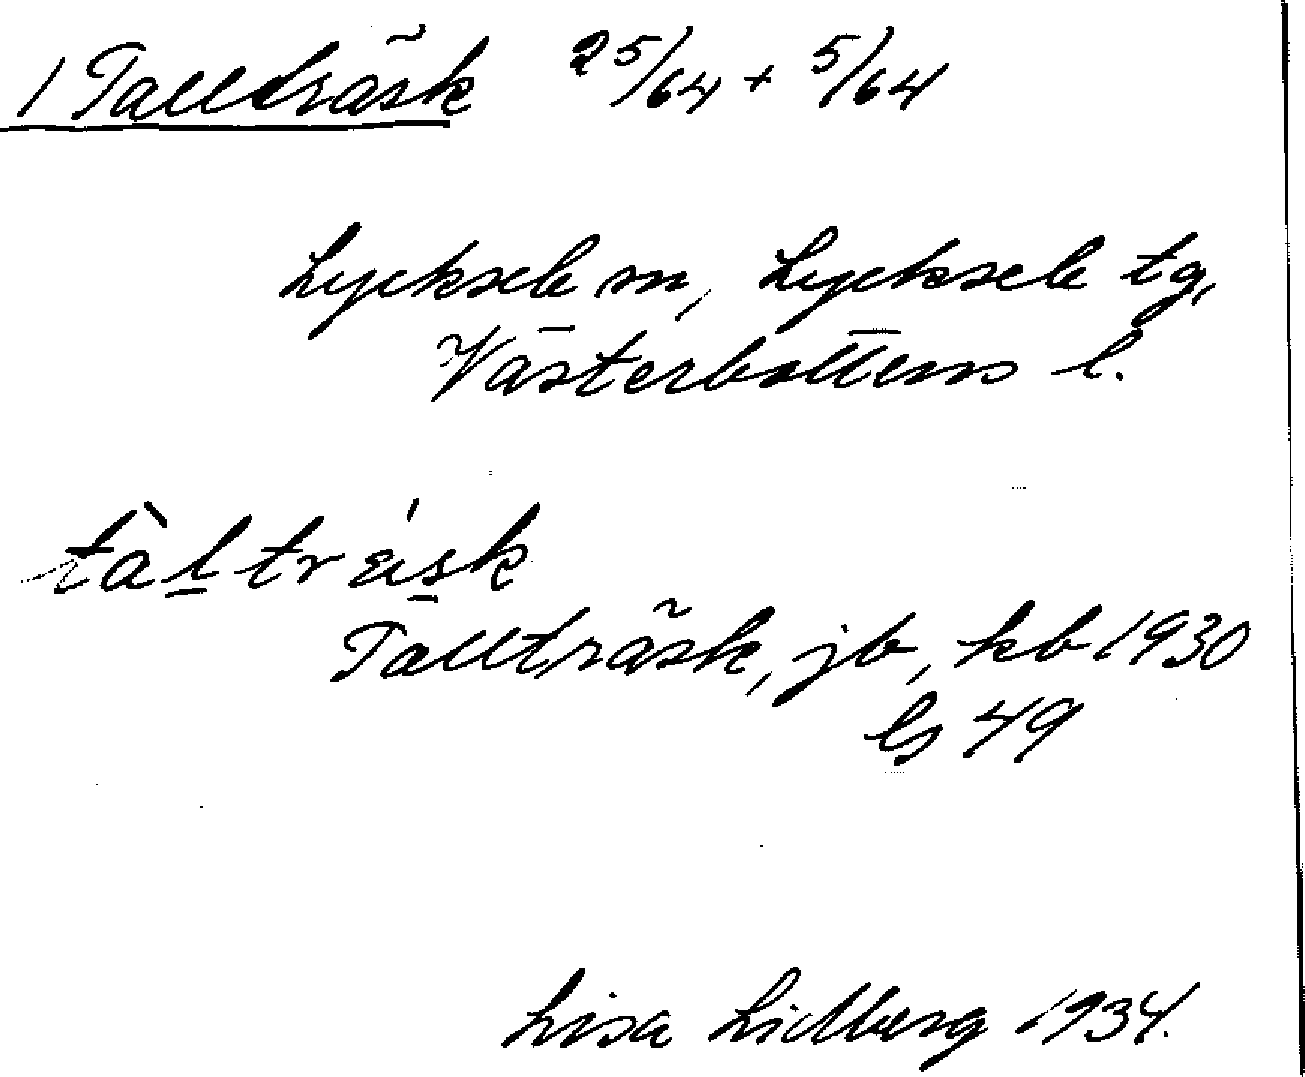 1 Tallträsk 25/64 + 5/64
Lycksele m, Lycksele tg,
Västerbottens l.
tàl̲trä́s̲k
Tallträsk, jb, kb 1930
bs 49
Lisa Lidberg 1934.